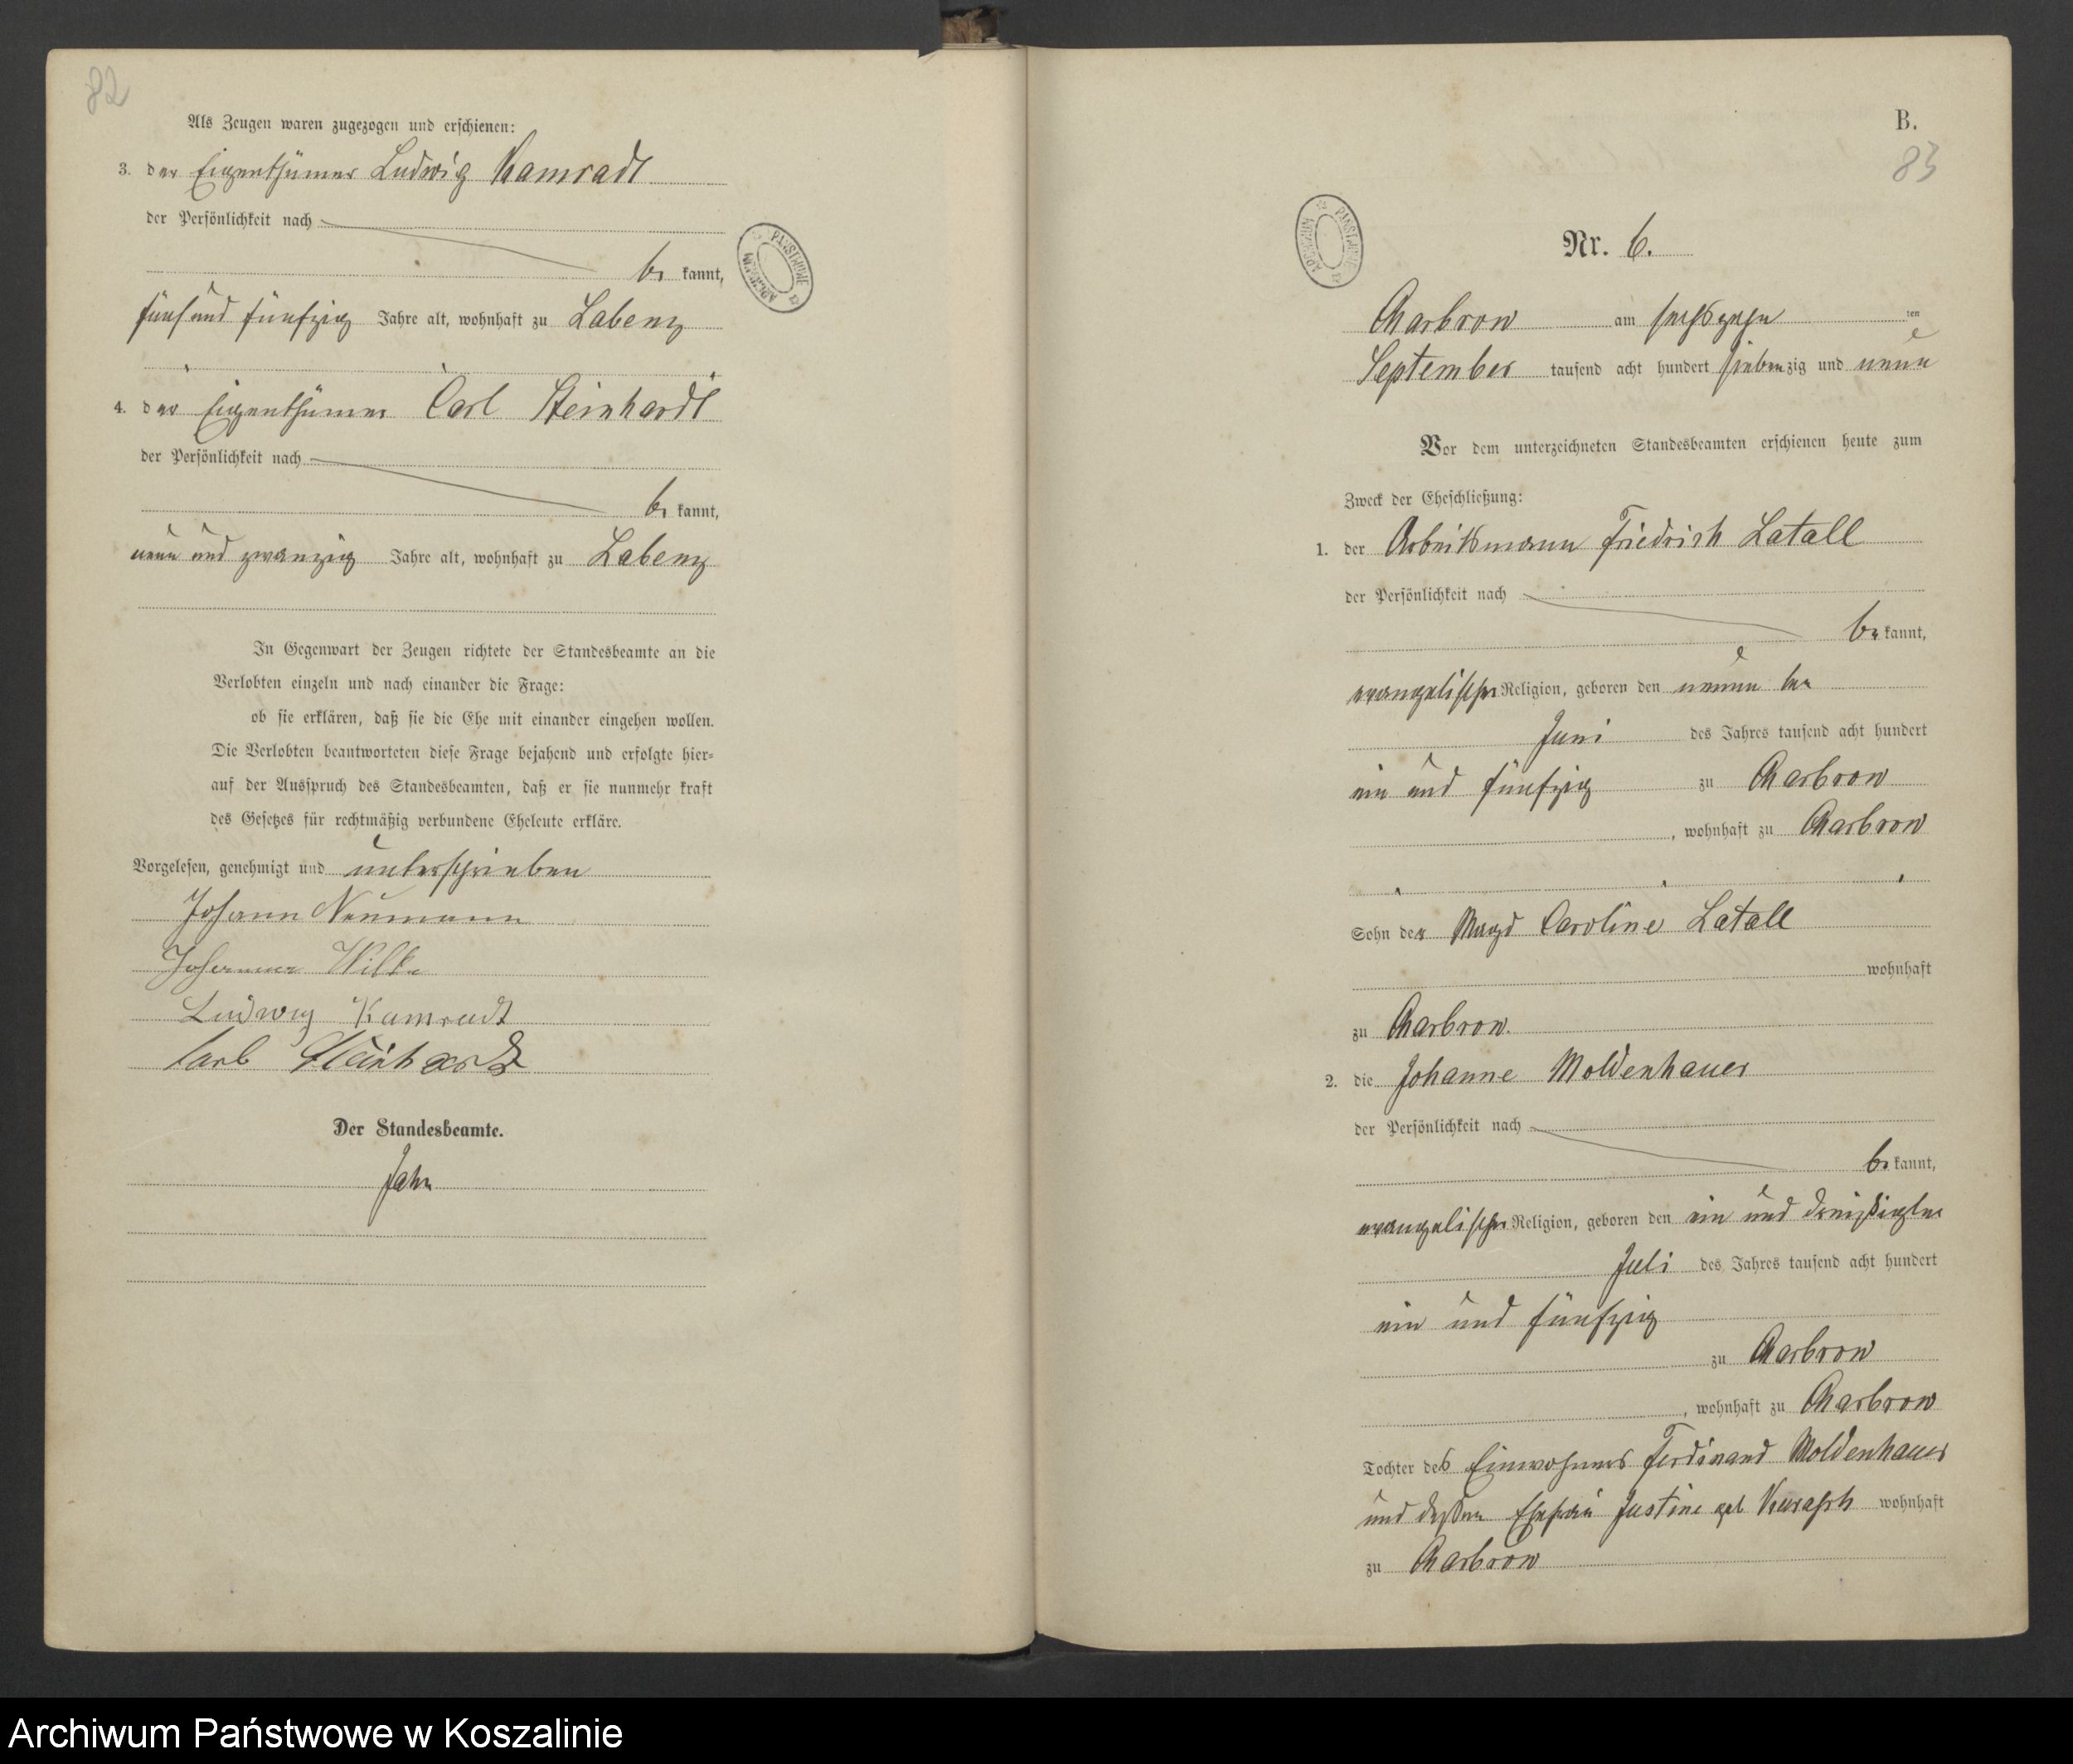 82
Als Zeugen waren zugezogen und erschienen:
3. der Eigenthümer Ludwig Kamradt
der Persönlichkeit nach
be kannt,
fünf und fünfzig Jahre alt, wohnhaft zu Labenz
4. der Eigenthümer Carl Steinhardt
der Persönlichkeit nach
be kannt,
neun und zwanzig Jahre alt, wohnhaft zu Labenz
In Gegenwart der Zeugen richtete der Standesbeamte an die
Verlobten einzeln und nach einander die Frage:
ob sie erklären, daß sie die Ehe mit einander eingehen wollen.
Die Verlobten beantworteten diese Frage bejahend und erfolgte hier-
auf der Ausspruch des Standesbeamten, daß er sie nunmehr kraft
des Gesetzes für rechtmäßig verbundene Eheleute erkläre.
Vorgelesen, genehmigt und unterschrieben
Johann Neumann
Johanna Wilke
Ludwig Kamradt
Carl Steinhardt
Der Standesbeamte.
Jahn
ARCHIWUM PAŃSTWOWE
B.
83
ARCHIWUM PAŃSTWOWE
Nr. 6.
Charbrow am sechszehn ten
September tausend acht hundert siebenzig und neun
Vor dem unterzeichneten Standesbeamten erschienen heute zum
Zweck der Eheschließung:
1. der Arbeitsmann Friedrich Latall
der Persönlichkeit nach
be kannt,
evangelischer Religion, geboren den neunten
Juni des Jahres tausend acht hundert
ein und fünfzig zu Charbrow
, wohnhaft zu Charbrow
Sohn der Magd Caroline Latall
wohnhaft
zu Charbrow.
2. die Johanne Moldenhauer
der Persönlichkeit nach
be kannt,
evangelischer Religion, geboren den ein und dreißigsten
Juli des Jahres tausend acht hundert
ein und fünfzig
zu Charbrow
, wohnhaft zu Charbrow
Tochter des Einwohners Ferdinand Moldenhauer
und deßen Ehefrau Justine geb wohnhaft
zu Charbrow
Archiwum Państwowe w Koszalinie